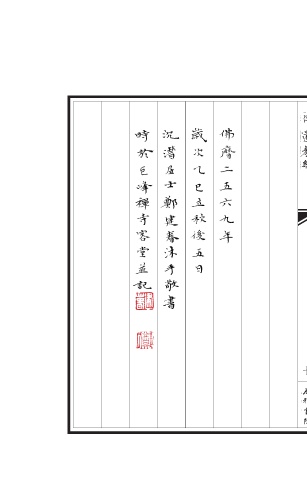 佛曆二五六九年
歲次乙巳立秋後五日
沉潛居士鄭健春沐手敬書
時於巨峰禪寺客堂並記